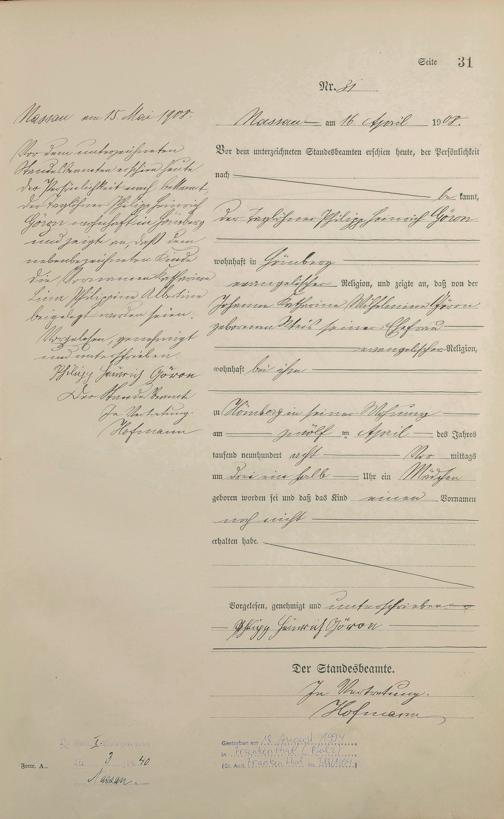 Seite 31
Nr. 31
Nassau am 15 Mai 1908.
Vor dem unterzeichneten
Standesbeamten erschien heute
der Persönlichkeit nach bekannt,
der Taglöhner Philipp Heinrich
Göron wohnhaft in Hömberg
und zeigte an, daß dem
nebenbezeichneten Kinde
die Vornamen Katharine
Lina Philippine Albertine
beigelegt worden seien.
Vorgelesen, genehmigt
und unterschrieben
Philipp Heinrich Göron
Der Standesbeamte
In Vertretung.
Hofmann
Nassau am 16 April 1908.
Vor dem unterzeichneten Standesbeamten erschien heute, der Persönlichkeit
nach
be kannt,
der Taglöhner Philipp Heinrich Göron
wohnhaft in Hömberg
evangelischer Religion, und zeigte an, daß von der
Johanna Katharine Wilhelmine Göron
geborenen seiner Ehefrau
evangelischer Religion,
wohnhaft bei ihm
zu Hömberg in seiner Wohnung
am zwölf ten April des Jahres
tausend neunhundert acht Vor mittags
um drei ein halb Uhr ein Mädchen
geboren worden sei und daß das Kind einen Vornamen
noch nicht
erhalten habe.
Vorgelesen, genehmigt und unterschrieben
Philipp Heinrich Göron
Der Standesbeamte.
In Vertretung.
Hofmann
Gestorben am 18. August 1994
in Frankenthal (Pfalz)
(St. Amt Frankenthal Nr.
Form. A.
3 40
Nassau